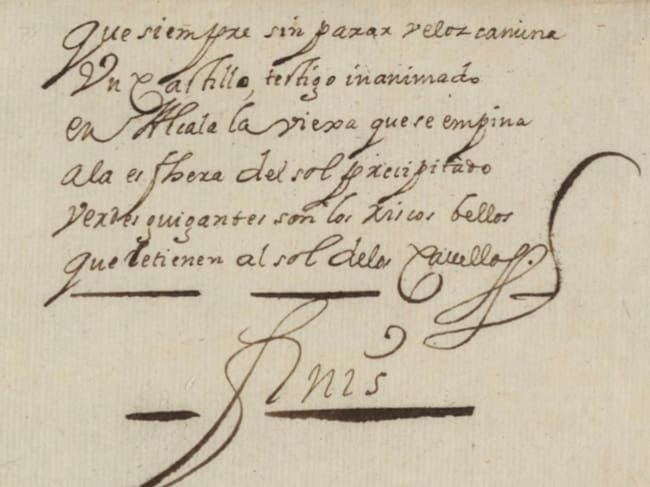 que siempre sin parar veloz camina
Vn Castillo, testigo inanimado
en Alcala la viexa que se empina
ala esphera del sol precipitado
verdes guigantes son los riscos bellos
que detienen al sol delos Cavellos.
Finis